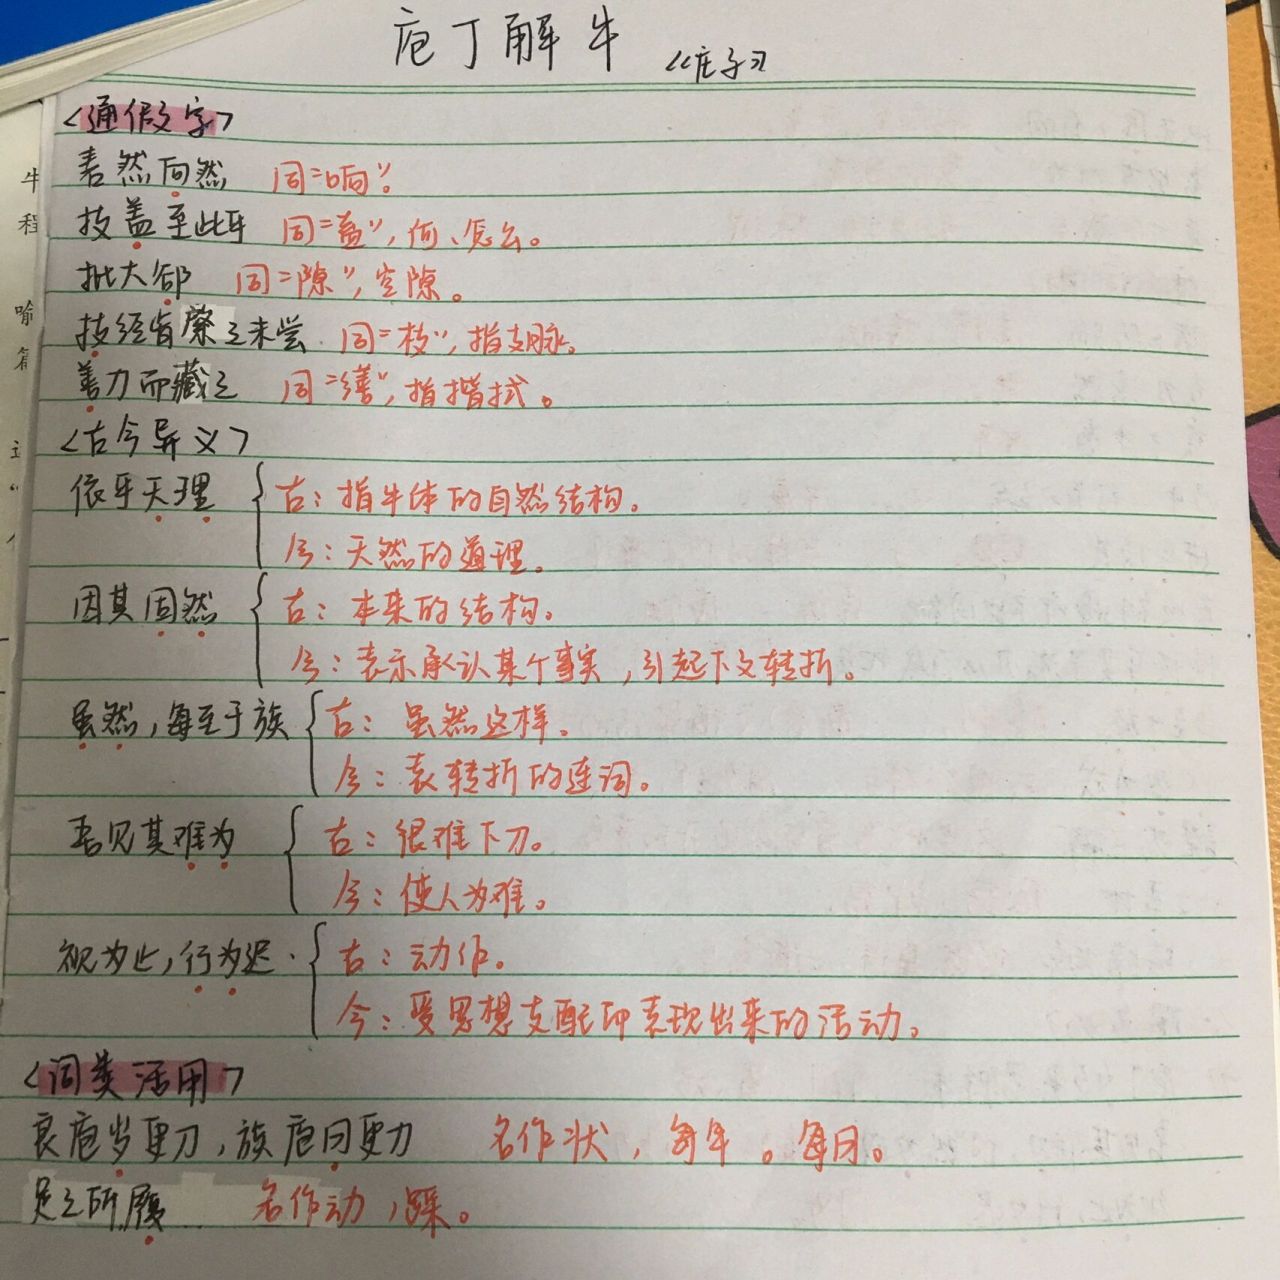 庖丁解牛 《庄子》
<通假字>
砉然向然 同"响"。
技盖至此乎 同"盍",何、怎么。
批大郤 同"隙",空隙。
技经肯綮之未尝 同"枝",指支脉。
善刀而藏之 同"缮",指揩拭。
<古今异义>
依乎天理 古:指牛体的自然结构。
今:天然的道理。
因其固然 古:本来的结构。
今:表示承认某个事实,引起下文转折。
虽然,每至于族 古:虽然这样。
今:表转折的连词。
吾见其难为 古:很难下刀。
今:使人为难。
视为止,行为迟. 古:动作。
今:受思想支配即表现出来的活动。
<词类活用>
良庖岁更刀,族庖月更刀 名作状,每年。每月。
足之所履 名作动,踩。
牛
程
喻